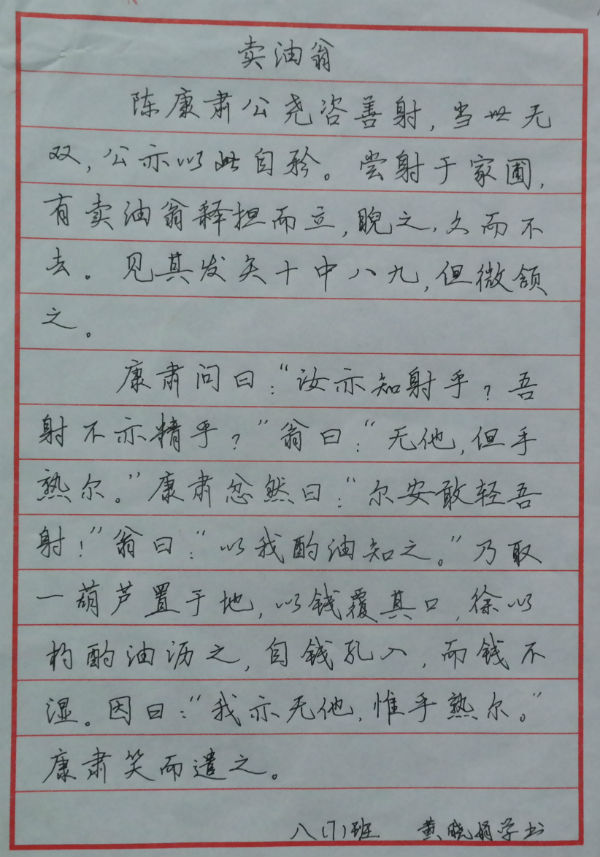 卖油翁
陈康肃公尧咨善射，当世无
双，公亦以此自矜。尝射于家圃，
有卖油翁释担而立，睨之，久而不
去。见其发矢十中八九，但微颔
之。
康肃问曰：“汝亦知射乎？吾
射不亦精乎？”翁曰：“无他，但手
熟尔。”康肃忿然曰：“尔安敢轻吾
射！”翁曰：“以我酌油知之。”乃取
一葫芦置于地，以钱覆其口，徐以
杓酌油沥之，自钱孔入，而钱不
湿。因曰：“我亦无他，惟手熟尔。”
康肃笑而遣之。
八(7)班 黄晓娟学书